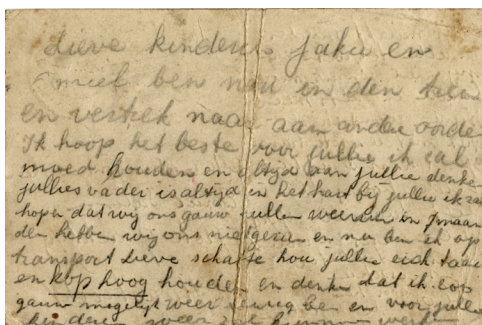 Lieve kinders Jaku en
miel ben nu in den trein
en vertrek naar aan andre oorde
Ik hoop het beste voor jullie ik zal
moed houden en altyd aan jullie denken
jullies vader is altyd in het hart bij jullie ik zal
hopen dat wij ons gauw zullen weerzien in maan
den hebben wij ons niet gezien en nu ben ik op
transport Lieve hou jullie eich taai
en kop hoog houden en denke dat ik zoo
gauw mogelijk weer terug ben en voor jullie
kinderen weer zal kunnen werken